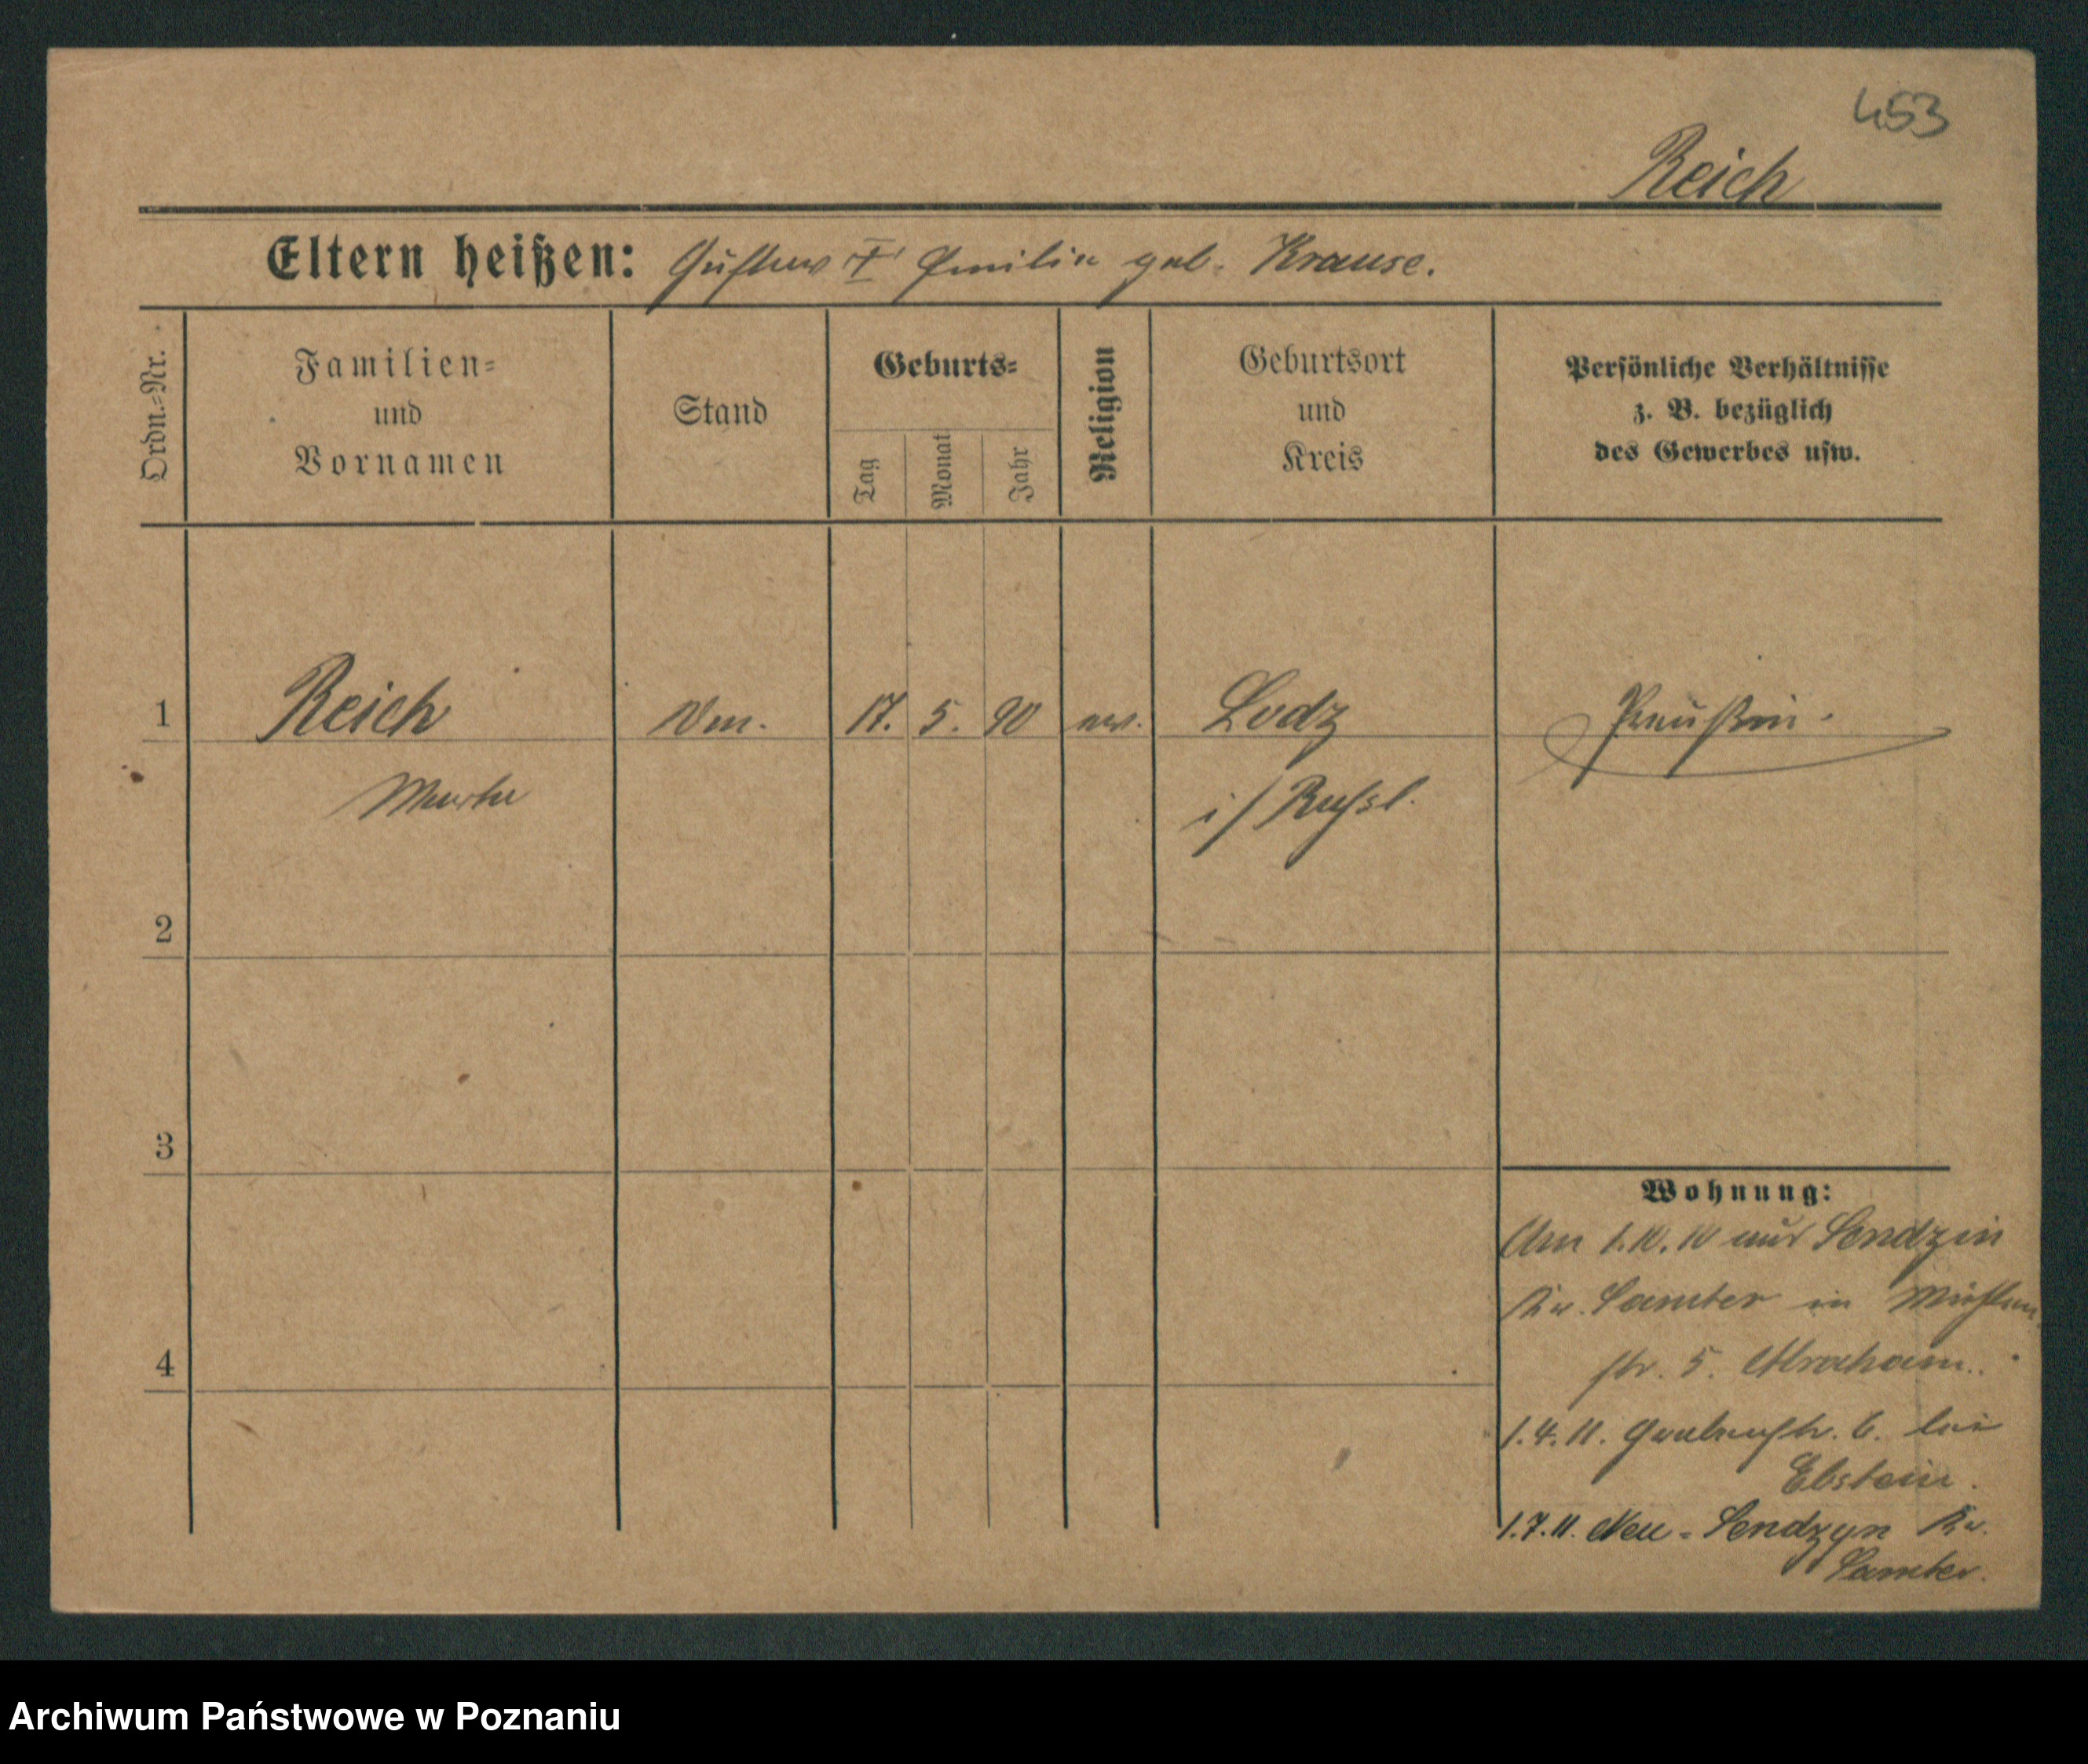 453
Reich
Eltern heißen: Gustav I Emilie geb. Krause.
Ordn.=Nr.
Familien=
und
Vornamen
Stand
Geburts=
Tag
Monat
Jahr
Religion
Geburtsort
und
Kreis
Persönliche Verhältnisse
z. B. bezüglich
des Gewerbes usw.
1 Reich 17. 5. 90 ev. Lodz Preußin.
Martha i/Russl.
2
3
4
Wohnung:
Am 1.10.10 aus Sendzin
Kr. Samter in Mühlen
str. 5. Abraham.
1.4.11. str. 6. bei
Ebstein.
1.7.11. Neu-Sendzyn Kr.
Samter.
Archiwum Państwowe w Poznaniu